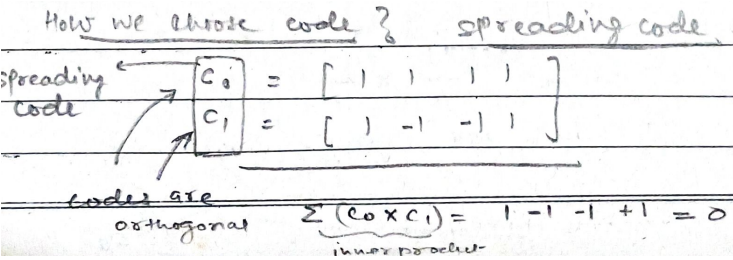 How we choose code ? spreading code
spreading C0 = [ 1 1 1 1 ]
code C1 = [ 1 -1 -1 1 ]
codes are
orthogonal Σ (C0 x C1) = 1 -1 -1 +1 = 0
inner product